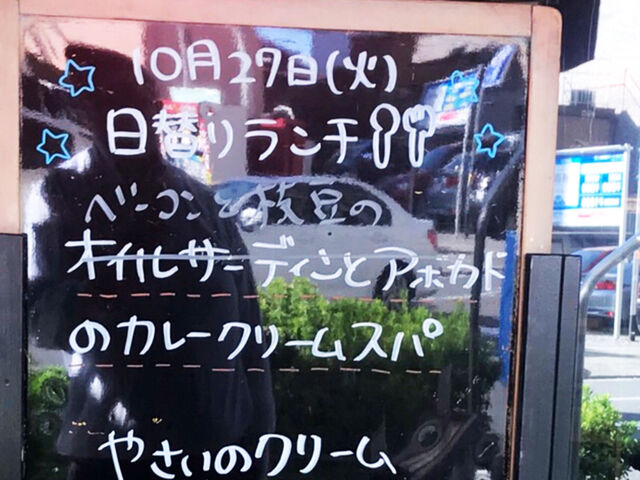 10月27日(火)
日替りランチ
ベーコンと枝豆の
オイルサーディンとアボカド
のカレークリームスパ
やさいのクリーム